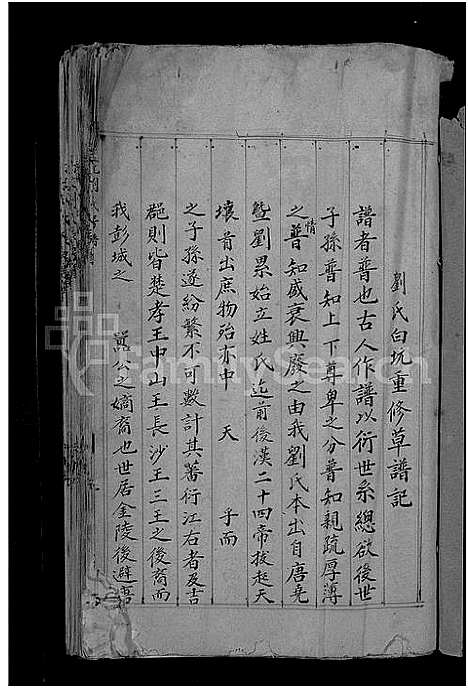 劉氏白坑重修草譜記
譜者普也古人作譜以衍世系總欲後世
子孫普知上下尊卑之分普知親疏厚薄
之情普知盛衰興廢之由我劉氏本出自唐堯
暨劉累始立姓氏迄前後漢二十四帝拔起天
壤首出庶物殆亦中 天 子而
之子孫遂紛繁不可數計其蕃衍江右者及吉
郡則皆楚孝王中山王長沙王三王之後裔而
我彭城之 公之嫡裔也世居金陵後避唐
FamilySearch